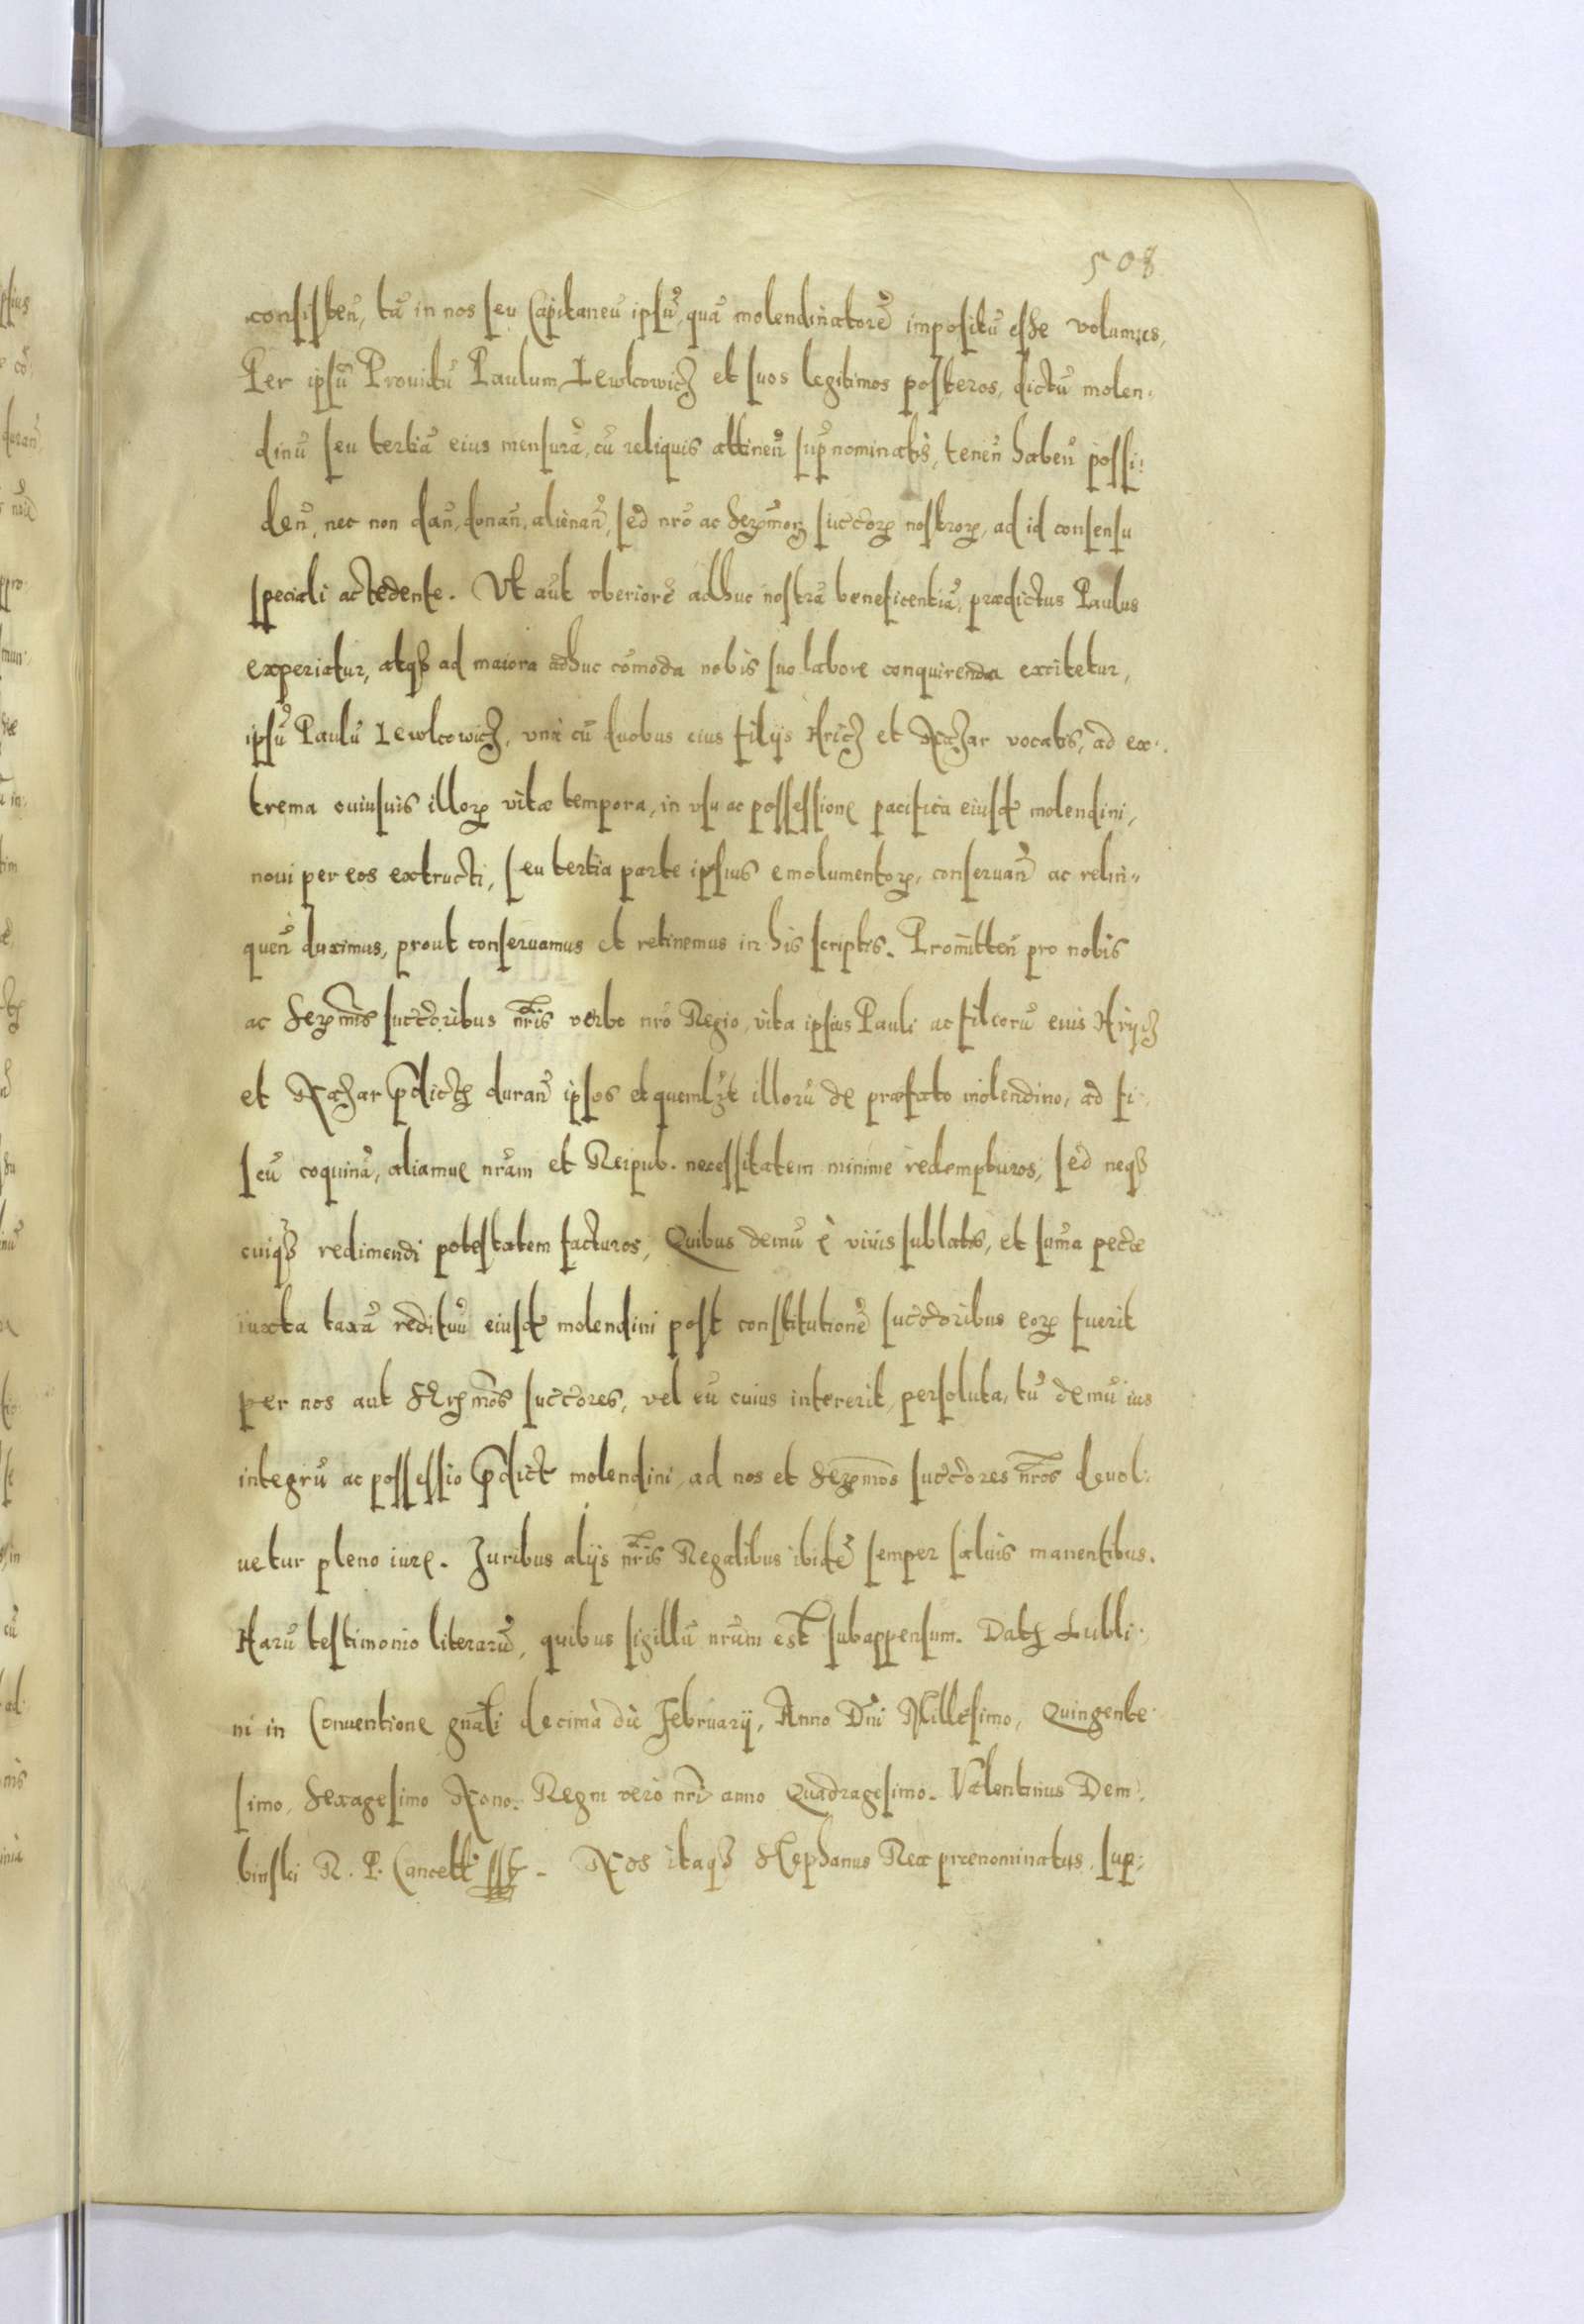 508
consisteñ, tã in nos seu Capitaneũ ipsũ, quã molendinatorẽ impositũ esse volumus,
Per ipsũ Prouidũ Paulum Lewkowicz et suos legitimos posteros, dictũ molen-
dinũ seu tertiã eius mensurã, cũ reliquis attineñ sup̃nominatis, teneñ habeñ possi:
deñ, nec non dañ, donañ, alienañ, sed nr̃o ac Serꝫmoꝝ succc̃oꝝ nostroꝝ, ad id consensu
speciali accedente. Vt aũt vberiorẽ adhuc nostrã beneficentiã, prædictus Paulus
experiatur, atqꝫ ad maiora adhuc cõmoda nobis suo labore conquirenda excitetur,
ipsũ Paulũ Lewkowicz, vnà cũ duobus eius filijs Hricz et Nazar vocatis, ad ex-
trema cuiusuis illoꝝ vitæ tempora, in vsu ac possessione pacifica eiusd molendini,
noui per eos extructi, seu tertia parte ipsius emolumentoꝝ, conseruañ ac relin-
queñ duximus, prout conseruamus et retinemus in his scriptis. Promitteñ pro nobis
ac Serꝫmis succc̃oribus nr̃is verbo nr̃o Regio, vita ipsius Pauli ac filiorũ eius Hrycz
et Nazar p̃dictꝫ durañ ipsos et quemlꝫt illorũ de præfato molendino, ad fi-
scũ coquinã, aliamue nr̃am et Reipub. necessitatem minime redempturos, sed neqꝫ
cuiqꝫ redimendi potestatem facturos, Quibus demũ è viuis sublatis, et sum̃a pec̃æ
iuxta taxã redituũ eiusd molendini post constitutionẽ succc̃oribus eoꝝ fuerit
per nos aut Serꝫmos succc̃ores, vel eũ cuius intererit, persoluta, tũ demũ ius
integrũ ac possessio p̃dict molendini, ad nos et Serꝫmos succc̃ores nr̃os deuol:
uetur pleno iure. Juribus alijs nr̃is Regalibus ibidẽ semper saluis manentibus.
Harũ testimonio literarũ, quibus sigillũ nr̃um est subappensum. Datꝫ Lubli-
ni in Conuentione gñali decima die February, Anno Dñi Millesimo, Quingente-
simo, Sexagesimo Nono. Regni verò nr̃i anno Quadragesimo. Valentinus Dem-
binski R. P. Cancell sst. Nos itaqꝫ Stephanus Rex prænominatus, sup: